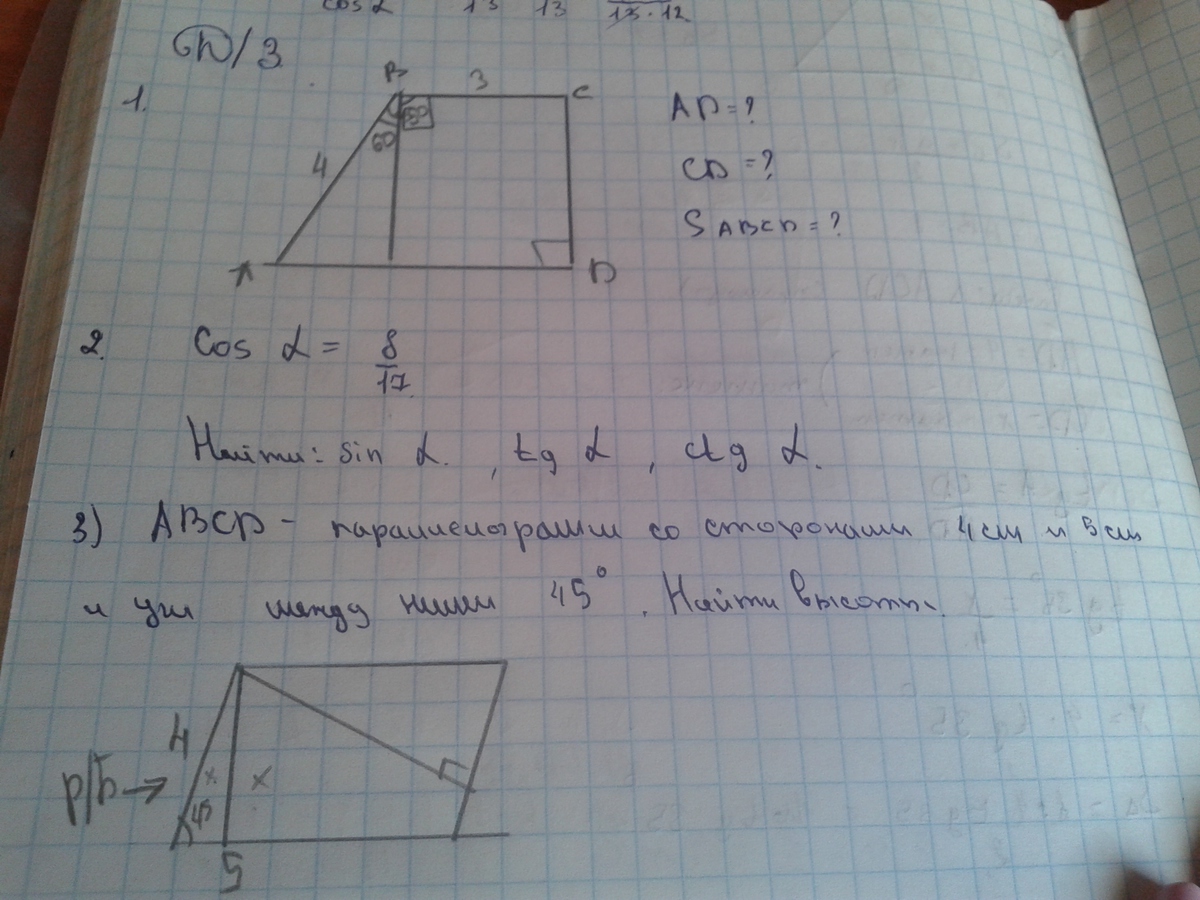 cos α 13 13 13·12
Д/З
1.
B 3 C
AD = ?
60
4
CD = ?
S ABCD = ?
A D
2. Cos α = 8/17
Найти: sin α. , tg α , ctg α.
3) ABCD - параллелограмм со сторонами 4 см и 5 см
и угл между ними 45°. Найти высоты.
4
р/б → x x
45
5